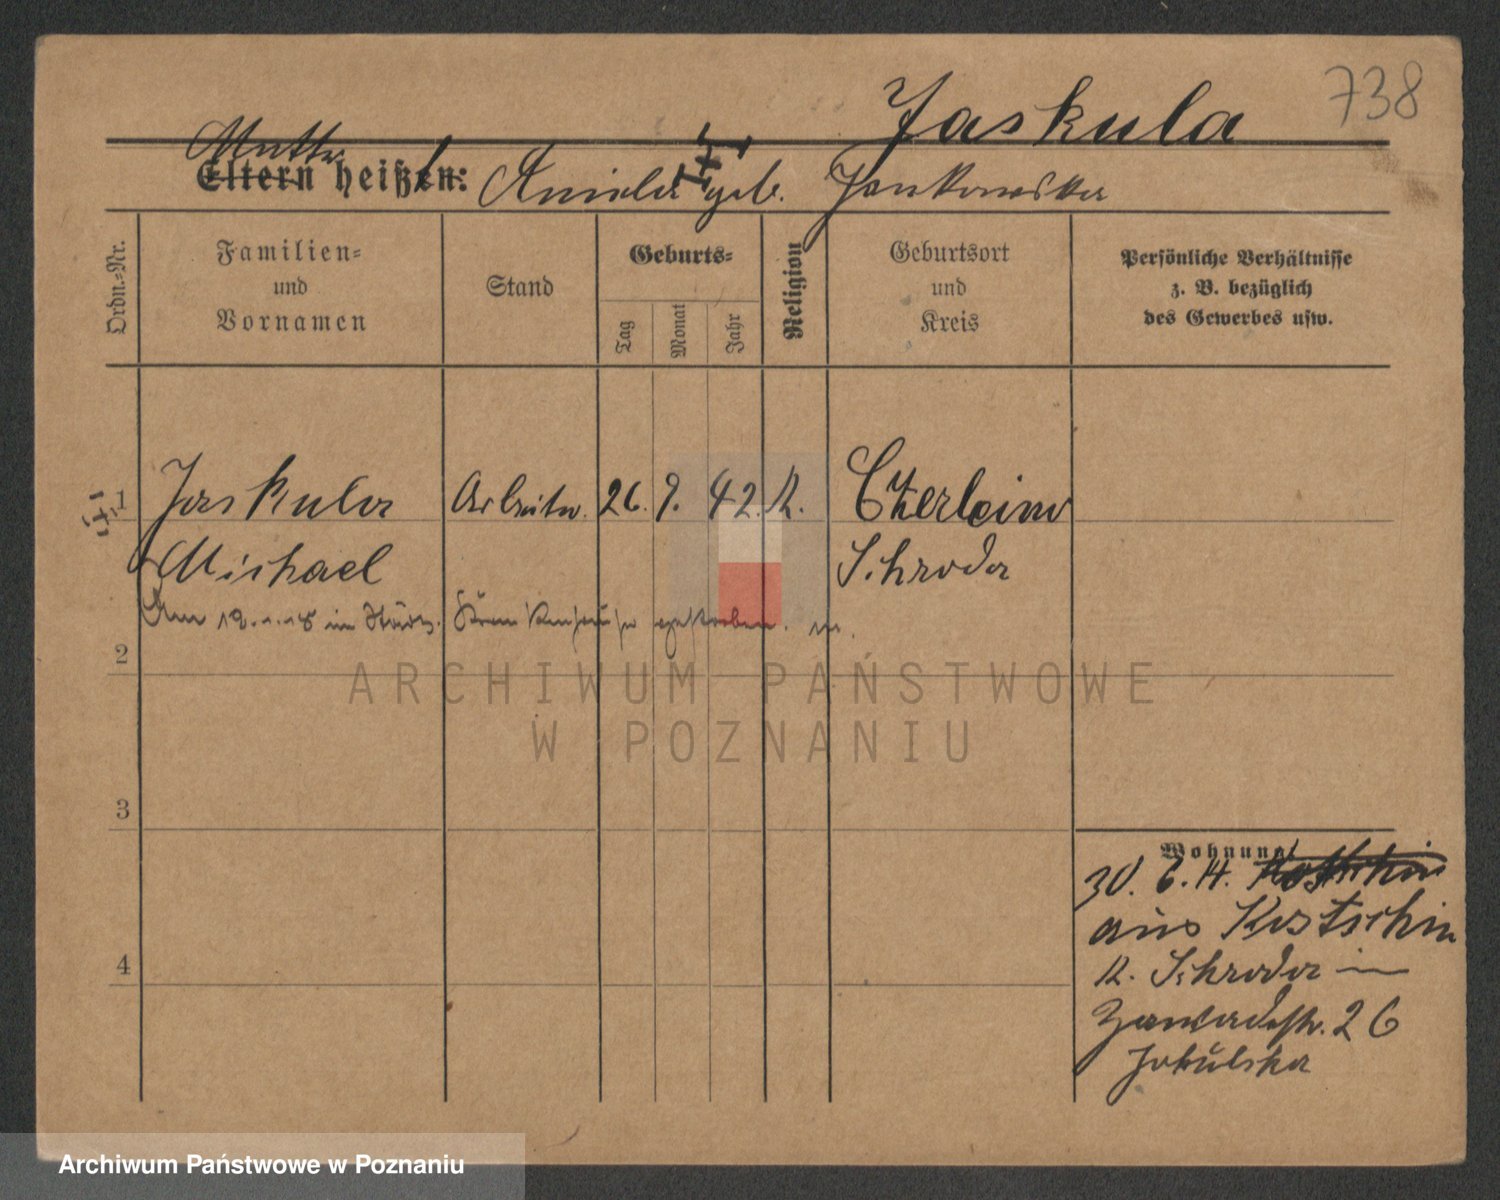 738
Jaskula
Mutter
Eltern heißen: Aniela geb. Jankowska
Ordn.=Nr.
Familien=
und
Vornamen
Stand
Geburts=
Tag
Monat
Jahr
Religion
Geburtsort
und
Kreis
Persönliche Verhältnisse
z. B. bezüglich
des Gewerbes usw.
1 Jaskula Arbeiter. 26. 9. 42. K. Czerleino
Michael Schroda
Am 19. 1. 18 im Städt. Krankenhause gestorben.
2
ARCHIWUM PAŃSTWOWE
W POZNANIU
3
Wohnung
30. 6. 14. Kostschin
aus Kostschin
K. Schroda in
Zawadestr. 26
4
Archiwum Państwowe w Poznaniu